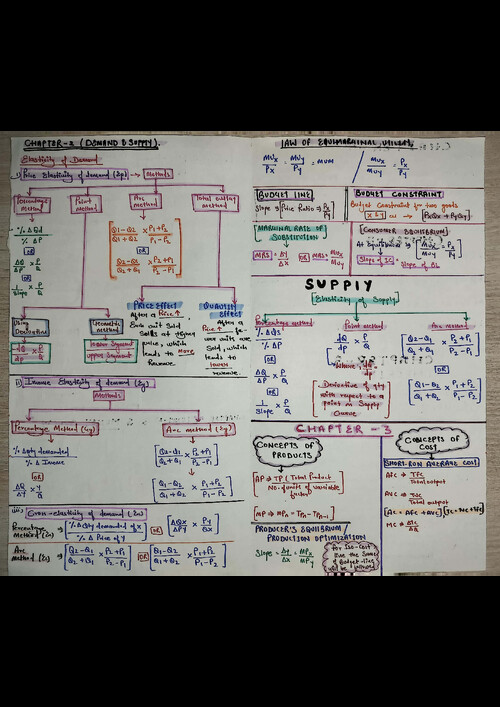 CHAPTER-2 (DEMAND & SUPPLY).
Elasticity of Demand
i) Price Elasticity of demand (Ep) → Methods
Percentage Method
Point Method
Arc method
Total outlay method
% Δ Qd
% ΔP
OR
ΔQ/ΔP × P/Q
OR
1/slope × P/Q
[Q1-Q2/Q1+Q2 × P1+P2/P1-P2]
OR
[Q2-Q1/Q2+Q1 × P2+P1/P2-P1]
Using Derivative
Geometric method
-dQ/dP × P/Q
lower segment
upper segment
PRICE EFFECT
After a Price↑
Each unit sold
sells at higher
price, which
leads to More
Revenue.
QUANTITY EFFECT
After a
Price ↑
units are
sold, which
leads to
lower
revenue.
ii) Income Elasticity of demand (Ey)
Methods
Percentage Method (Ey)
Arc method (Ey)
% Δ qty demanded
% Δ Income
OR
ΔQ/ΔY × Y/Q
[Q2-Q1/Q2+Q1 ×
OR
[Q1-Q2/Q1+Q2 ×
iii) Cross-elasticity of demand (Ec)
Percentage Method (Ec) ⇒ [% Δ qty demanded of X / % Δ Price of Y] OR [ΔQX/ΔPY × PY/QX]
Arc Method (Ec) ⇒ [Q2-Q1/Q2+Q1 × P2+P1/P2-P1] OR [Q1-Q2/Q1+Q2 × P1+P2/P1-P2]
LAW OF EQUIMARGINAL UTILITY
MUx/Px = MUy/Py = MUM / MUx/MUy = Px/Py
BUDGET LINE
Slope ⇒ Price Ratio ⇒ Px/Py
BUDGET CONSTRAINT
Budget Constraint for two goods
MARGINAL RATE OF SUBSTITUTION
MRS ⇒ ΔY/ΔX OR MRS ⇒ MUx/MUy
CONSUMER EQUILIBRIUM
At Equilibrium ⇒ MUx/MUy = Px/Py
Slope of IC = Slope of BL
SUPPLY
Elasticity of Supply
Percentage Method
Point Method
Arc method
% Δ Qs
% ΔP
OR
ΔQ/ΔP × P/Q
OR
1/slope × P/Q
dQ/dP × P/Q
Where, dQ/dP
⇒ Derivative of qty
with respect to a
point on Supply
Curve
[Q2-Q1/Q2+Q1 × P2+P1/P2-P1]
OR
[Q1-Q2/Q1+Q2 × P1+P2/P1-P2]
CHAPTER - 3
CONCEPTS OF PRODUCTS
AP ⇒ TP (Total Product
No. of units of variable
factor)
MP ⇒ TPn - TPn-1
PRODUCER'S EQUILIBRIUM/
PRODUCTION OPTIMIZATION
Slope = ΔY/ΔX = MPx/MPy
For Iso-Cost
line the same
of Budget-line
will be followed
CONCEPTS OF COST
SHORT-RUN AVERAGE COST
AFC ⇒ TFC
Total output
AVC ⇒ TVC
Total output
AC = AFC + AVC
MC ⇒